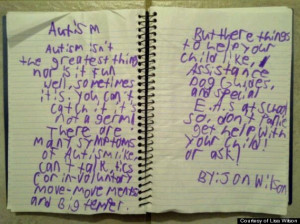 Autism
Autism isn't
the greatest thing
nor is it fun
well, sometimes
it is. you can't
catch it it's
not a germ!
There are
many symptoms
of Autism like,
can't talk, tics
(or involuntary
move-movements
and Big temper.
But there things
to help your
child like,
Assistance
Dog Guides,
and special
E.A.s at school
so, don't panic
get help with
your child!
or ask!
BY: JON Wilson
Courtesy of Lisa Wilson